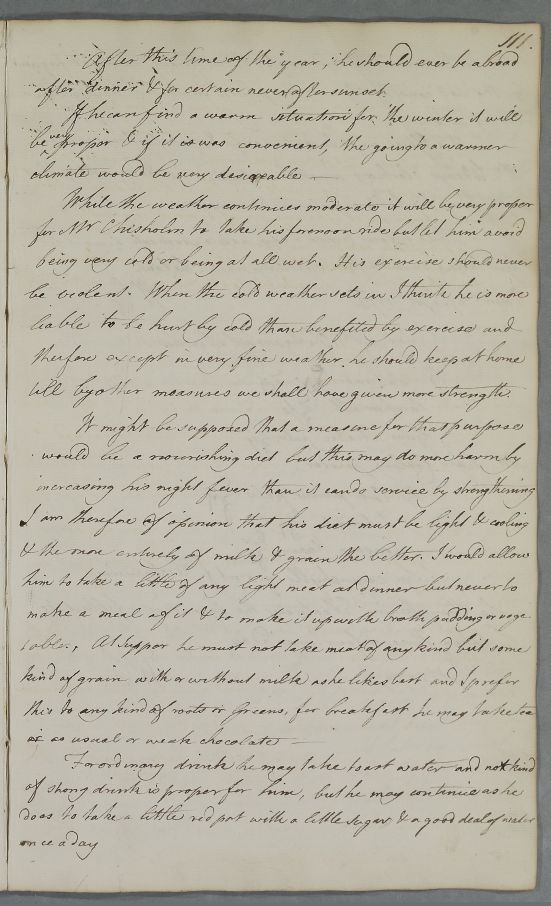 111.
After this time of the year, he should ever be abroad
after dinner & for certain never after sunset.
If he can find a warm situation for the winter it will
be very proper & if it is was convenient, the going to a warmer
climate would be very desireable —
While the weather continues moderate it will be very proper
for Mr Chisholm to take his forenoon ride but let him avoid
being very cold or being at all wet. His exercise should never
be violent. When the cold weather sets in I think he is more
liable to be hurt by cold than benefited by exercise and
therfore except in very fine weather he should keep at home
till by other measures we shall have given more strength.
It might be supposed that a measure for that purpose
would be a nourishing diet but this may do more harm by
increasing his night fever than it can do service by strengthening
I am therefore of opinion that his diet must be light & cooling
& the more entirely of milk & grain the better. I would allow
him to take a little of any light meat at dinner but never to
make a meal of it & to make it up with broth pudding or vege
tables, At supper he must not take meat of any kind but some
kind of grain with or without milk as he likes best and I prefer
this to any kind of roots or Greens, for breakfast he may take tea
as usual or weak chocolate —
For ordinary drink he may take toast water and no kind
of strong drink is proper for him, but he may continue as he
does to take a little red port with a little sugar & a good deal of water
once a day